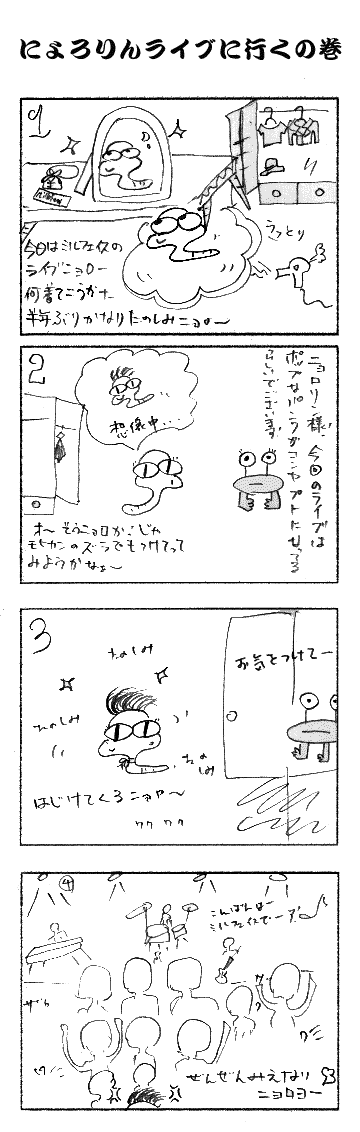 にょろりんライブに行くの巻
1
うっとり
今日はミルフェイズの
ライブニョロー
何着てこうかナ
半年ぶりかなりたのしみニョロ〜
2
想像中・・・
ニョロリン様、今回のライブは
ポップなパンクがコンセプトになってる
らしいでございます。
オ〜そうニョロか、じゃ
モヒカンのズラでもつけてって
みようかなぁ〜
3
たのしみ
お気をつけてー
たのしみ
たの
しみ
はじけてくるニョロ〜
ワク ワク
4
こんばんはー
ミルフェイズでーす
ぜんぜんみえない
ニョロヨー